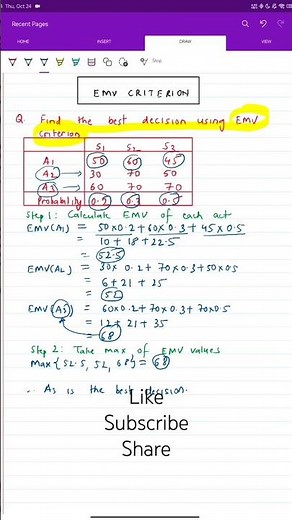 Thu, Oct 24
Recent Pages
HOME INSERT DRAW VIEW
EMV CRITERION
Q. Find the best decision using EMV
criterion
S1 S2 S3
A1 50 60 45
A2 → 30 70 50
A3 → 60 70 70
Probability 0.2 0.3 0.5
Step 1: Calculate EMV of each act
EMV(A1) = 50×0.2+60×0.3+45×0.5
= 10+18+22.5
= 52.5
EMV(A2) = 30×0.2+70×0.3+50×0.5
= 6+21+25
= 52
EMV(A3) = 60×0.2+70×0.3+70×0.5
= 12+21+35
= 68
Step 2: Take max of EMV values
Max{52.5, 52, 68} = 68
∴ A3 is the best decision.
Like
Subscribe
Share